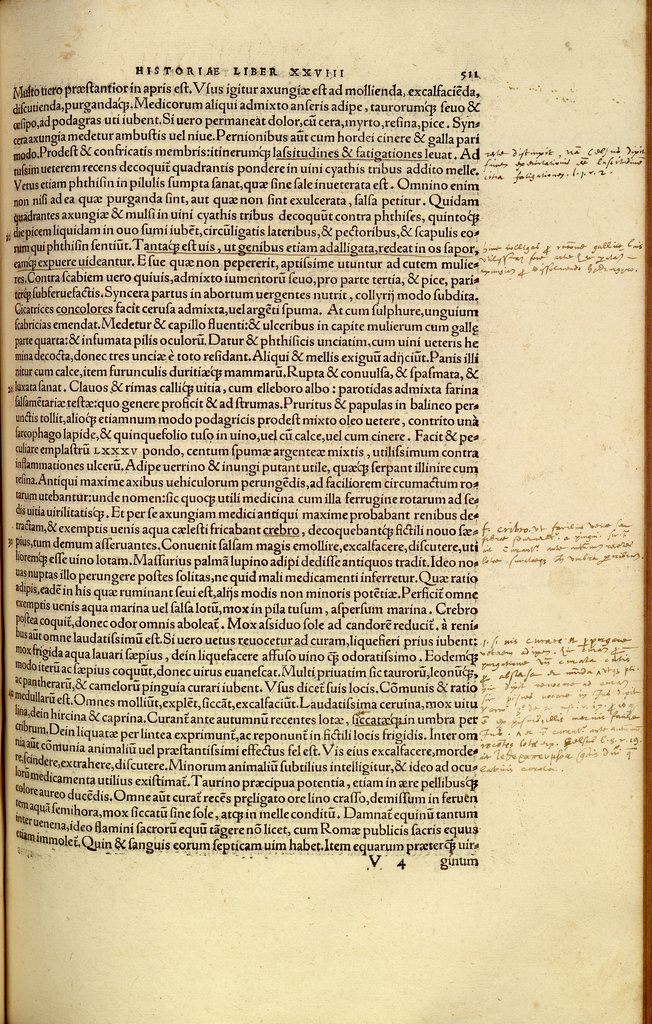 HISTORIAE LIBER XXVIII 511
Multo uero præstantior in apris est. Vsus igitur axungiæ est ad mollienda, excalfaciēda,
discutienda, purgandaq́;. Medicorum aliqui admixto anseris adipe, taurorumq́; seuo &
œsipo, ad podagras uti iubent. Si uero permaneat dolor, cū cera, myrto, resina, pice. Syn-
cera axungia medetur ambustis uel niue. Pernionibus aūt cum hordei cinere & galla pari
modo. Prodest & confricatis membris: itinerumq́; lassitudines & fatigationes leuat. Ad
tussim ueterem recens decoquit̃ quadrantis pondere in uini cyathis tribus addito melle.
Vetus etiam phthisin in pilulis sumpta sanat, quæ sine sale inueterata est. Omnino enim
non nisi ad ea quæ purganda sint, aut quæ non sint exulcerata, salsa petitur. Quidam
quadrantes axungiæ & mulsi in uini cyathis tribus decoquūt contra phthises, quintoq́;
die picem liquidam in ouo sumi iubēt, circūligatis lateribus, & pectoribus, & scapulis eo-
rum qui phthisin sentiūt. Tanta q́; est uis, ut genibus etiam adalligata, redeat in os sapor,
eamq́; expuere uideantur. E sue quæ non pepererit, aptissime utuntur ad cutem mulie-
res. Contra scabiem uero quiuis, admixto iumentorū seuo, pro parte tertia, & pice, pari-
terq́; subferuefactis. Syncera partus in abortum uergentes nutrit, collyrij modo subdita.
Cicatrices concolores facit cerusa admixta, uel argēti spuma. At cum sulphure, unguium
scabricias emendat. Medetur & capillo fluenti: & ulceribus in capite mulierum cum gallę
parte quarta: & infumata pilis oculorū. Datur & phthisicis unciatim, cum uini ueteris he
mina decocta, donec tres unciæ è toto restdant. Aliqui & mellis exiguū adijciūt. Panis illi
nitur cum calce, item furunculis duritiæq́; mammarū. Rupta & conuulsa, & spasmata, &
luxata sanat. Clauos & rimas calliq́; uitia, cum elleboro albo: parotidas admixta farina
salsamētariæ testæ: quo genere proficit & ad strumas. Pruritus & papulas in balineo per-
unctis tollit, alioq́; etiamnum modo podagricis prodest mixto oleo uetere, contrito unà
sarcophago lapide, & quinquefolio tuso in uino, uel cū calce, uel cum cinere. Facit & pe-
culiare emplastrū LXXXV pondo, centum spumæ argenteæ mixtis, utilissimum contra
inflammationes ulcerū. Adipe uerrino & inungi putant utile, quæq́; serpant illinire cum
resina. Antiqui maxime axibus uehiculorum perungēdis, ad faciliorem circumactum ro-
tarum utebantur: unde nomen: sic quoq́; utili medicina cum illa ferrugine rotarum ad se-
dis uitia uirilitatisq́;. Et per se axungiam medici antiqui maxime probabant renibus de-
tractam, & exemptis uenis aqua cælesti fricabant crebro, decoquebantq́; fictili nouo sæ-
pius, tum demum asseruantes. Conuenit salsam magis emollire, excalfacere, discutere, uti
lioremq́; esse uino lotam. Massurius palmā lupino adipi dedisse antiquos tradit. Ideo no-
uas nuptas illo perungere postes solitas, ne quid mali medicamenti inferretur. Quæ ratio
adipis, eadē in his quæ ruminant seui est, alijs modis non minoris potētiæ. Perficit̃ omne
exemptis uenis aqua marina uel salsa lotū, mox in pila tusum, aspersum marina. Crebro
postea coquit̃, donec odor omnis aboleat̃. Mox assiduo sole ad candorē reducit̃. à reni-
bus aūt omne laudatissimū est. Si uero uetus reuocetur ad curam, liquefieri prius iubent:
mox frigida aqua lauari sæpius, dein liquefacere affuso uino q́; odoratissimo. Eodemq́;
modo iterū ac sæpius coquūt, donec uirus euanescat. Multi priuatim sic taurorū, leonūq́;,
ac pantherarū, & camelorū pinguia curari iubent. Vsus dicet̃ suis locis. Cōmunis & ratio
medullarū est. Omnes molliūt, explēt, siccāt, excalfaciūt. Laudatissima ceruina, mox uitu
lina, dein hircina & caprina. Curant̃ ante autumnū recentes lotæ, siccatæq́; in umbra per
cribrum. Dein liquatæ per lintea exprimunt̃, ac reponunt̃ in fictili locis frigidis. Inter om
nia aūt cōmunia animaliū uel præstantissimi effectus fel est. Vis eius excalfacere, morde-
re, scindere, extrahere, discutere. Minorum animaliū subtilius intelligitur, & ideo ad ocu-
lorū medicamenta utilius existimat̃. Taurino præcipua potentia, etiam in ære pellibusq́;
colore aureo ducēdis. Omne aūt curat̃ recēs præligato ore lino crasso, demissum in feruen
tem aquā semihora, mox siccatū sine sole, atq́; in melle conditū. Damnat̃ equinū tantum
inter uenena, ideo flamini sacrorū equū tāgere nō licet, cum Romæ publicis sacris equus
etiam immolet̃. Quin & sanguis eorum septicam uim habet. Item equarum præterq̃ uir-
V 4 ginum